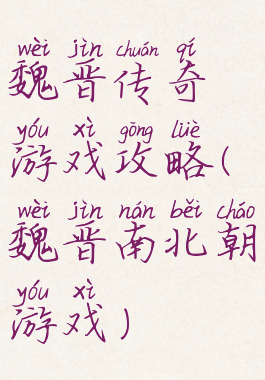 wèi jìn chuán qí
魏晋传奇
yóu xì gōng lüè
游戏攻略(
wèi jìn nán běi cháo
魏晋南北朝
yóu xì
游戏)